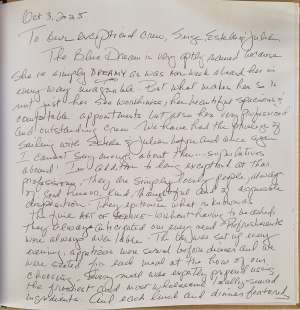 Oct 3, 2025
To our exceptional crew, Serge, Esteban & Julien
The Blue Dream is very aptly named because
she is simply DREAMY as was our week aboard her in
every way imaginable. But what makes her so is
not just her sea worthiness, her beautiful spacious &
comfortable appointments but also her very professional
and outstanding crew. We have had the privilege of
sailing with Esteban & Julien before and once again
I cannot say enough about them - superlatives
abound. In addition to being exceptional at their
professions, they are simply lovely people, always
in good humour, kind, thoughtful and of agreeable
disposition. They epitomize what is known as
the fine ART of SERVICE - without having to be asked
they always anticipated our every need & refreshments
were always over there. The table was set up every
evening, appetizers were served before dinner and we
were seated for each meal at the hour of our
choosing. Every meal was expertly prepared using
the freshest and most wholesome locally-sourced
ingredients. And each lunch and dinner featured